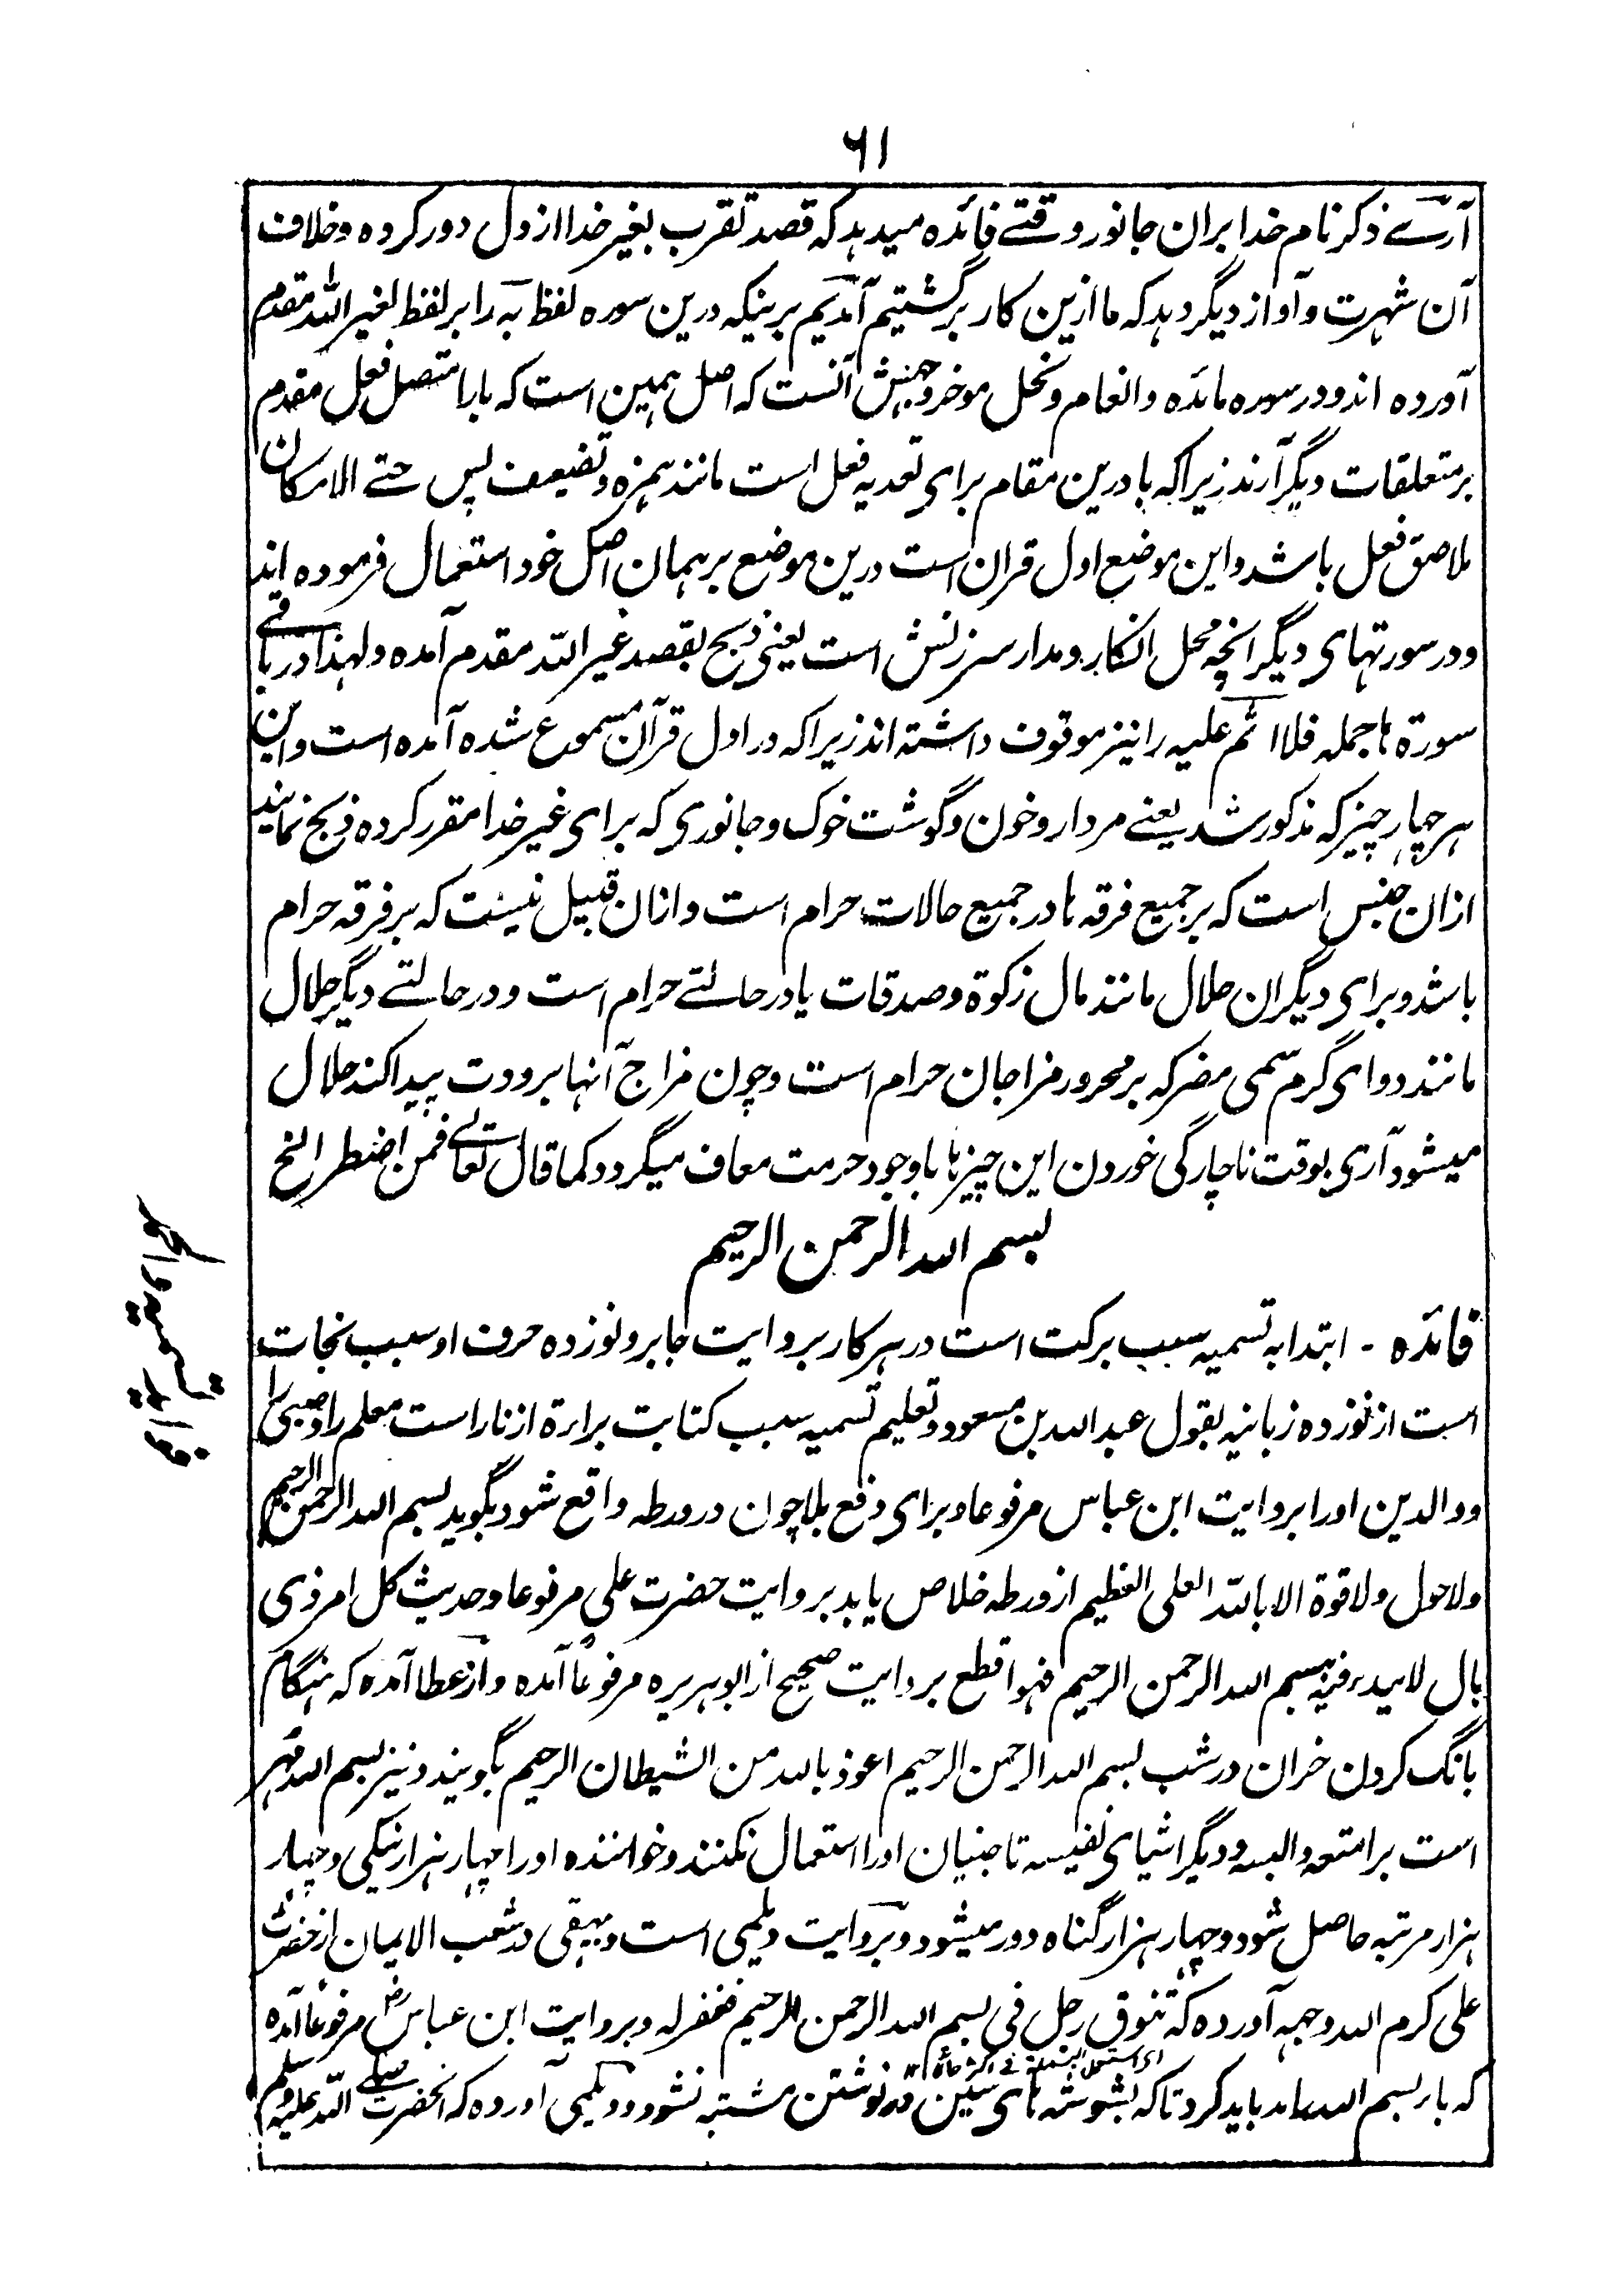 ۶۱
آرے ذکر نام خدا بران جانور وقتے فائده میدہد که قصد تقرب بغیر خدا از دل دور کرده و خلاف
آن شہرت و آواز دیگر دہد که ما ازین کار برگشتیم آمدیم برینکه درین سوره لفظ به را بر لفظ لغیر اللہ مقدم
آورده اند و در سوره مائده و انعام و نحل موخر وجہش آنست که اصل ہمین است که با را متصل فعل مقدم
بر متعلقات دیگر آرند زیرا که با درین مقام برای تعدیه فعل است مانند ہمزه و تضیعف پس حتے الامکان
ملاصق فعل باشد و این موضع اول قران است درین موضع بر ہمان اصل خود استعمال فرموده اند
و در سورتہای دیگر انچه محل انکار و مدار سرزنش است یعنی ذبح بقصد غیر اللہ مقدم آمده و لہذا در باقے
سورة ہا جمله فلا اثم علیه را نیز موقوف داشته اند زیرا که در اول قرآن مسموع شده آمده است و این
ہر چہار چیز که مذکور شد یعنے مردار و خون و گوشت خوک و جانوری که برای غیر خدا مقرر کرده ذبح نمایند
ازان جنس است که بر جمیع فرقه ہا در جمیع حالات حرام است و ازان قبیل نیست که بر فرقه حرام
باشد و برای دیگران حلال مانند مال زکوة و صدقات یا در حالتے حرام است و در حالتے دیگر حلال
مانند دوای گرم سمی مضر که بر محرور مزاجان حرام است و چون مزاج آنہا برودت پیدا کند حلال
میشود آری بوقت ناچارگی خوردن این چیز ہا باوجود حرمت معاف میگردد کما قال تعالے فمن اضطر الخ
بسم اللہ الرحمن الرحیم
فائده - ابتدا به تسمیه سبب برکت است در ہر کار بروایت جابر و نوزده حرف او سبب نجات
است از نوزده زبانیه بقول عبد اللہ بن مسعود و تعلیم تسمیه سبب کتابت براءة از نار است معلم را و صبی را
و والدین او را بروایت ابن عباس مرفوعا و برای دفع بلا چون در ورطه واقع شود بگوید بسم اللہ الرحمن الرحیم
ولا حول ولا قوة الا باللہ العلی العظیم از ورطه خلاص یابد بروایت حضرت علی مرفوعا و حدیث کل امر ذی
بال لا یبدء فیه ببسم اللہ الرحمن الرحیم فہو اقطع بروایت صحیح از ابو ہریره مرفوعاً آمده و از عطا آمده که ہنگام
بانگ کردن خران در شب بسم اللہ الرحمن الرحیم اعوذ باللہ من الشیطان الرجیم بگویند و نیز بسم اللہ مہر
است بر امتعه و البسه و دیگر اشیای نفیسه تا جنیان او را استعمال نکنند و خواننده او را چہار ہزار نیکی و چہار
ہزار مرتبه حاصل شود و چہار ہزار گناه دور میشود و بروایت دیلمی است و بیہقی در شعب الایمان از حضرت
علی کرم اللہ وجہه آورده که تنوق رجل فی بسم اللہ الرحمن الرحیم فغفر له و بروایت ابن عباس رض مرفوعاً آمده
که بار بسم اللہ باید کرد تا که بشوشه ہای سین در نوشتن مشتبه نشود و دیلمی آورده که آنحضرت صلے اللہ علیه وسلم
فوائد تسمیه و الحمد